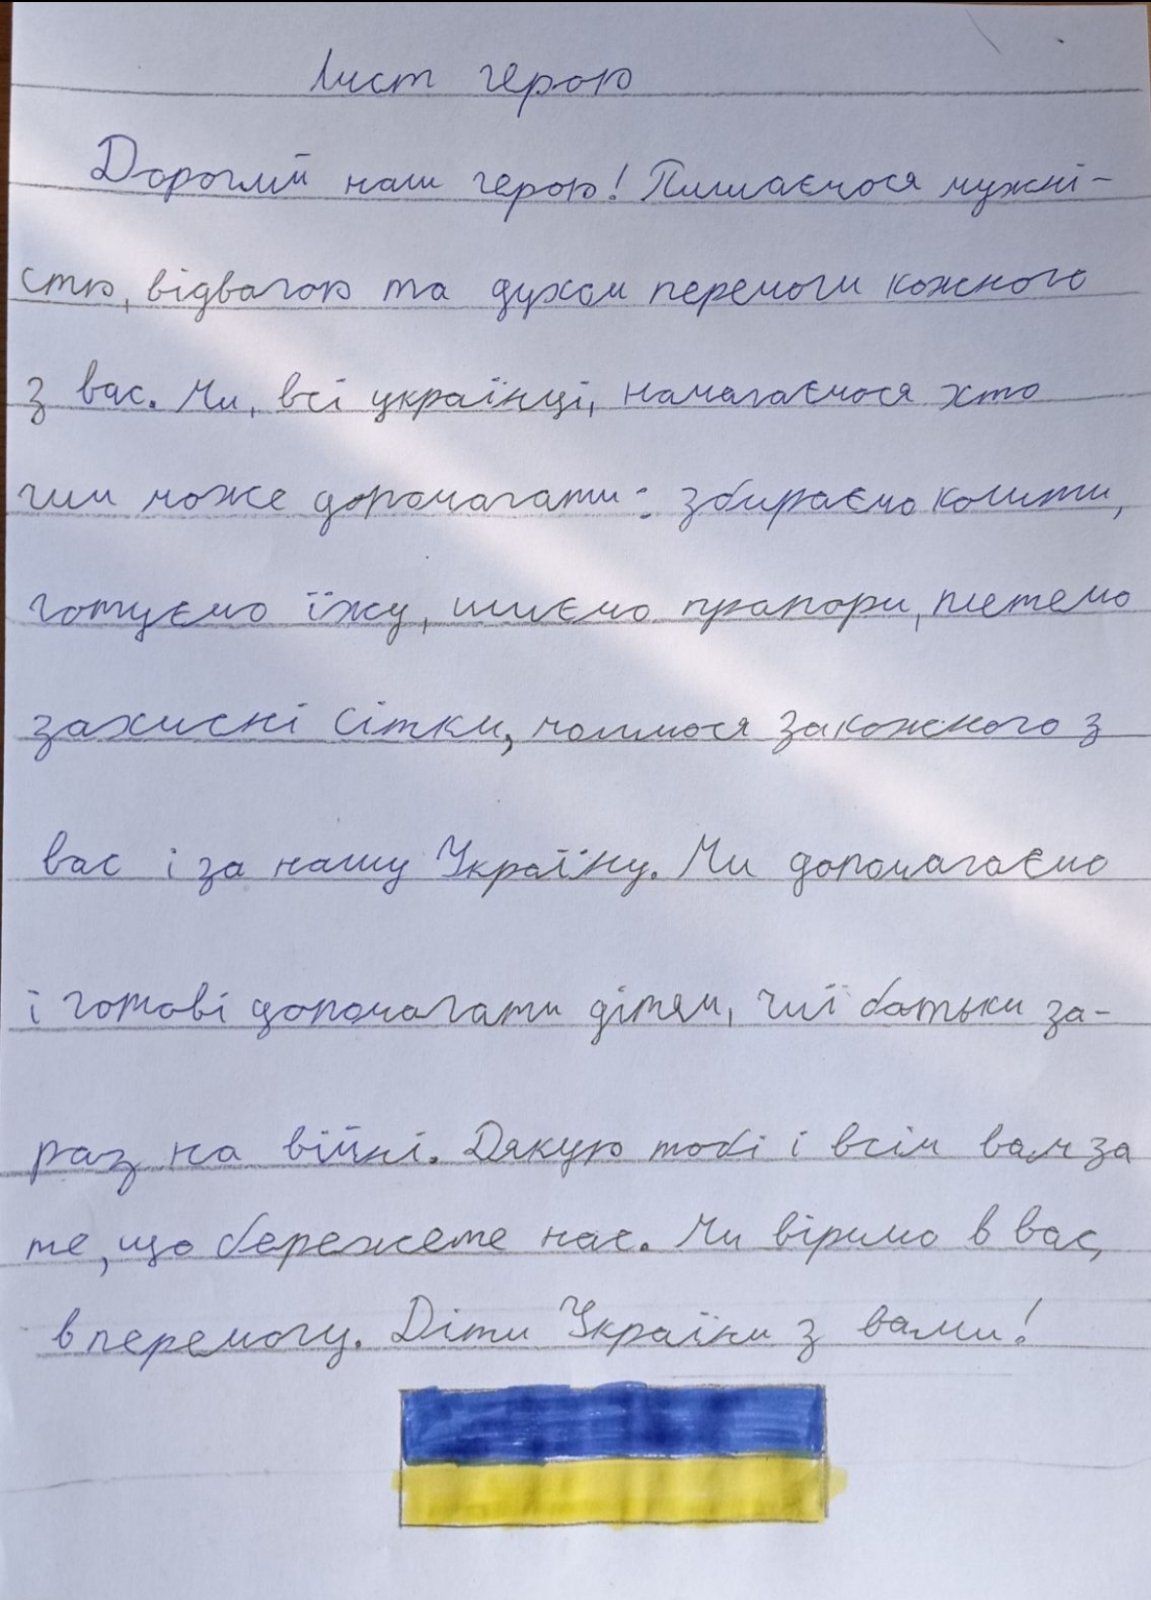 Лист герою
Дорогий наш герою! Пишаємося мужні-
стю, відвагою та духом перемоги кожного
з вас. Ми, всі українці, намагаємося хто
чим може допомагати: збираємо кошти,
готуємо їжу, шиємо прапори, плетемо
захисні сітки, молимося за кожного з
вас і за нашу Україну. Ми допомагаємо
і готові допомагати дітям, чиї батьки за-
раз на війні. Дякую тобі і всім вам за
те, що бережете нас. Ми віримо в вас,
в перемогу. Діти України з вами!